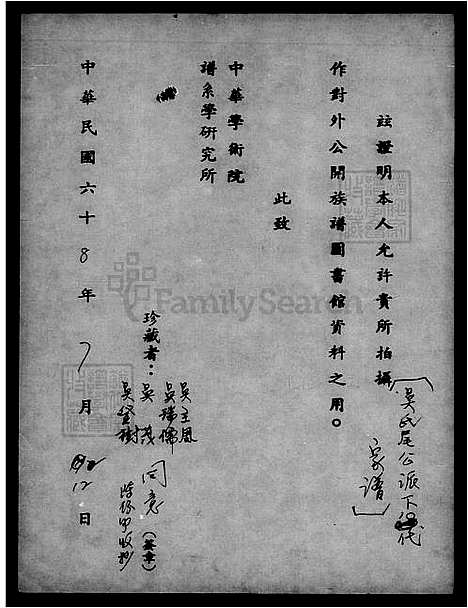 茲證明本人允許貴所拍攝
[吳氏尾公派下
家譜]
作對外公開族譜圖書館資料之用。
此致
中華學術院
譜系學研究所
珍藏者：
吳主恩
吳瑞儒
吳茂
吳堅樹
同意
(簽章)
中華民國六十8年7月12日
FamilySearch